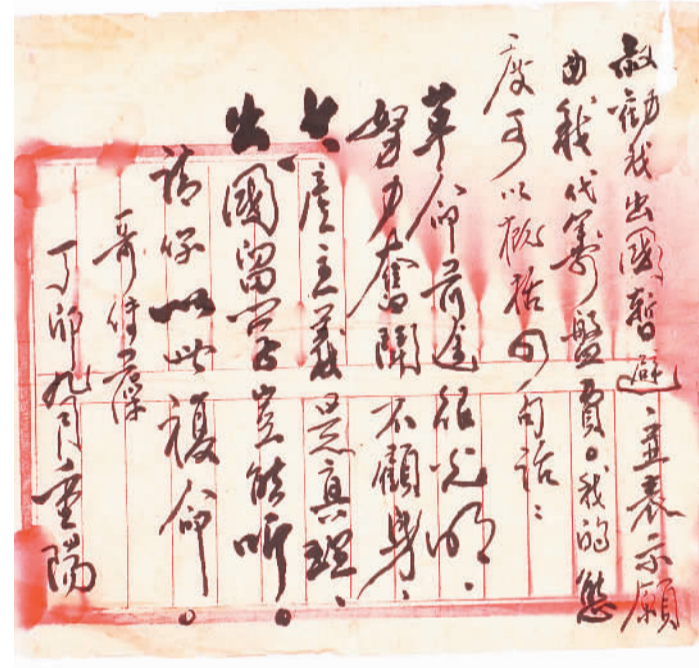 叔劝我出國暫避、並表示願
由我代筹盤費。我的態
度可以概括四句話：
革命前途很光明、
努力奮鬪不顧身、
共產主義是真理、
出國留学豈能听。
請你以此復命。
哥侍藻
丁卯九月重陽